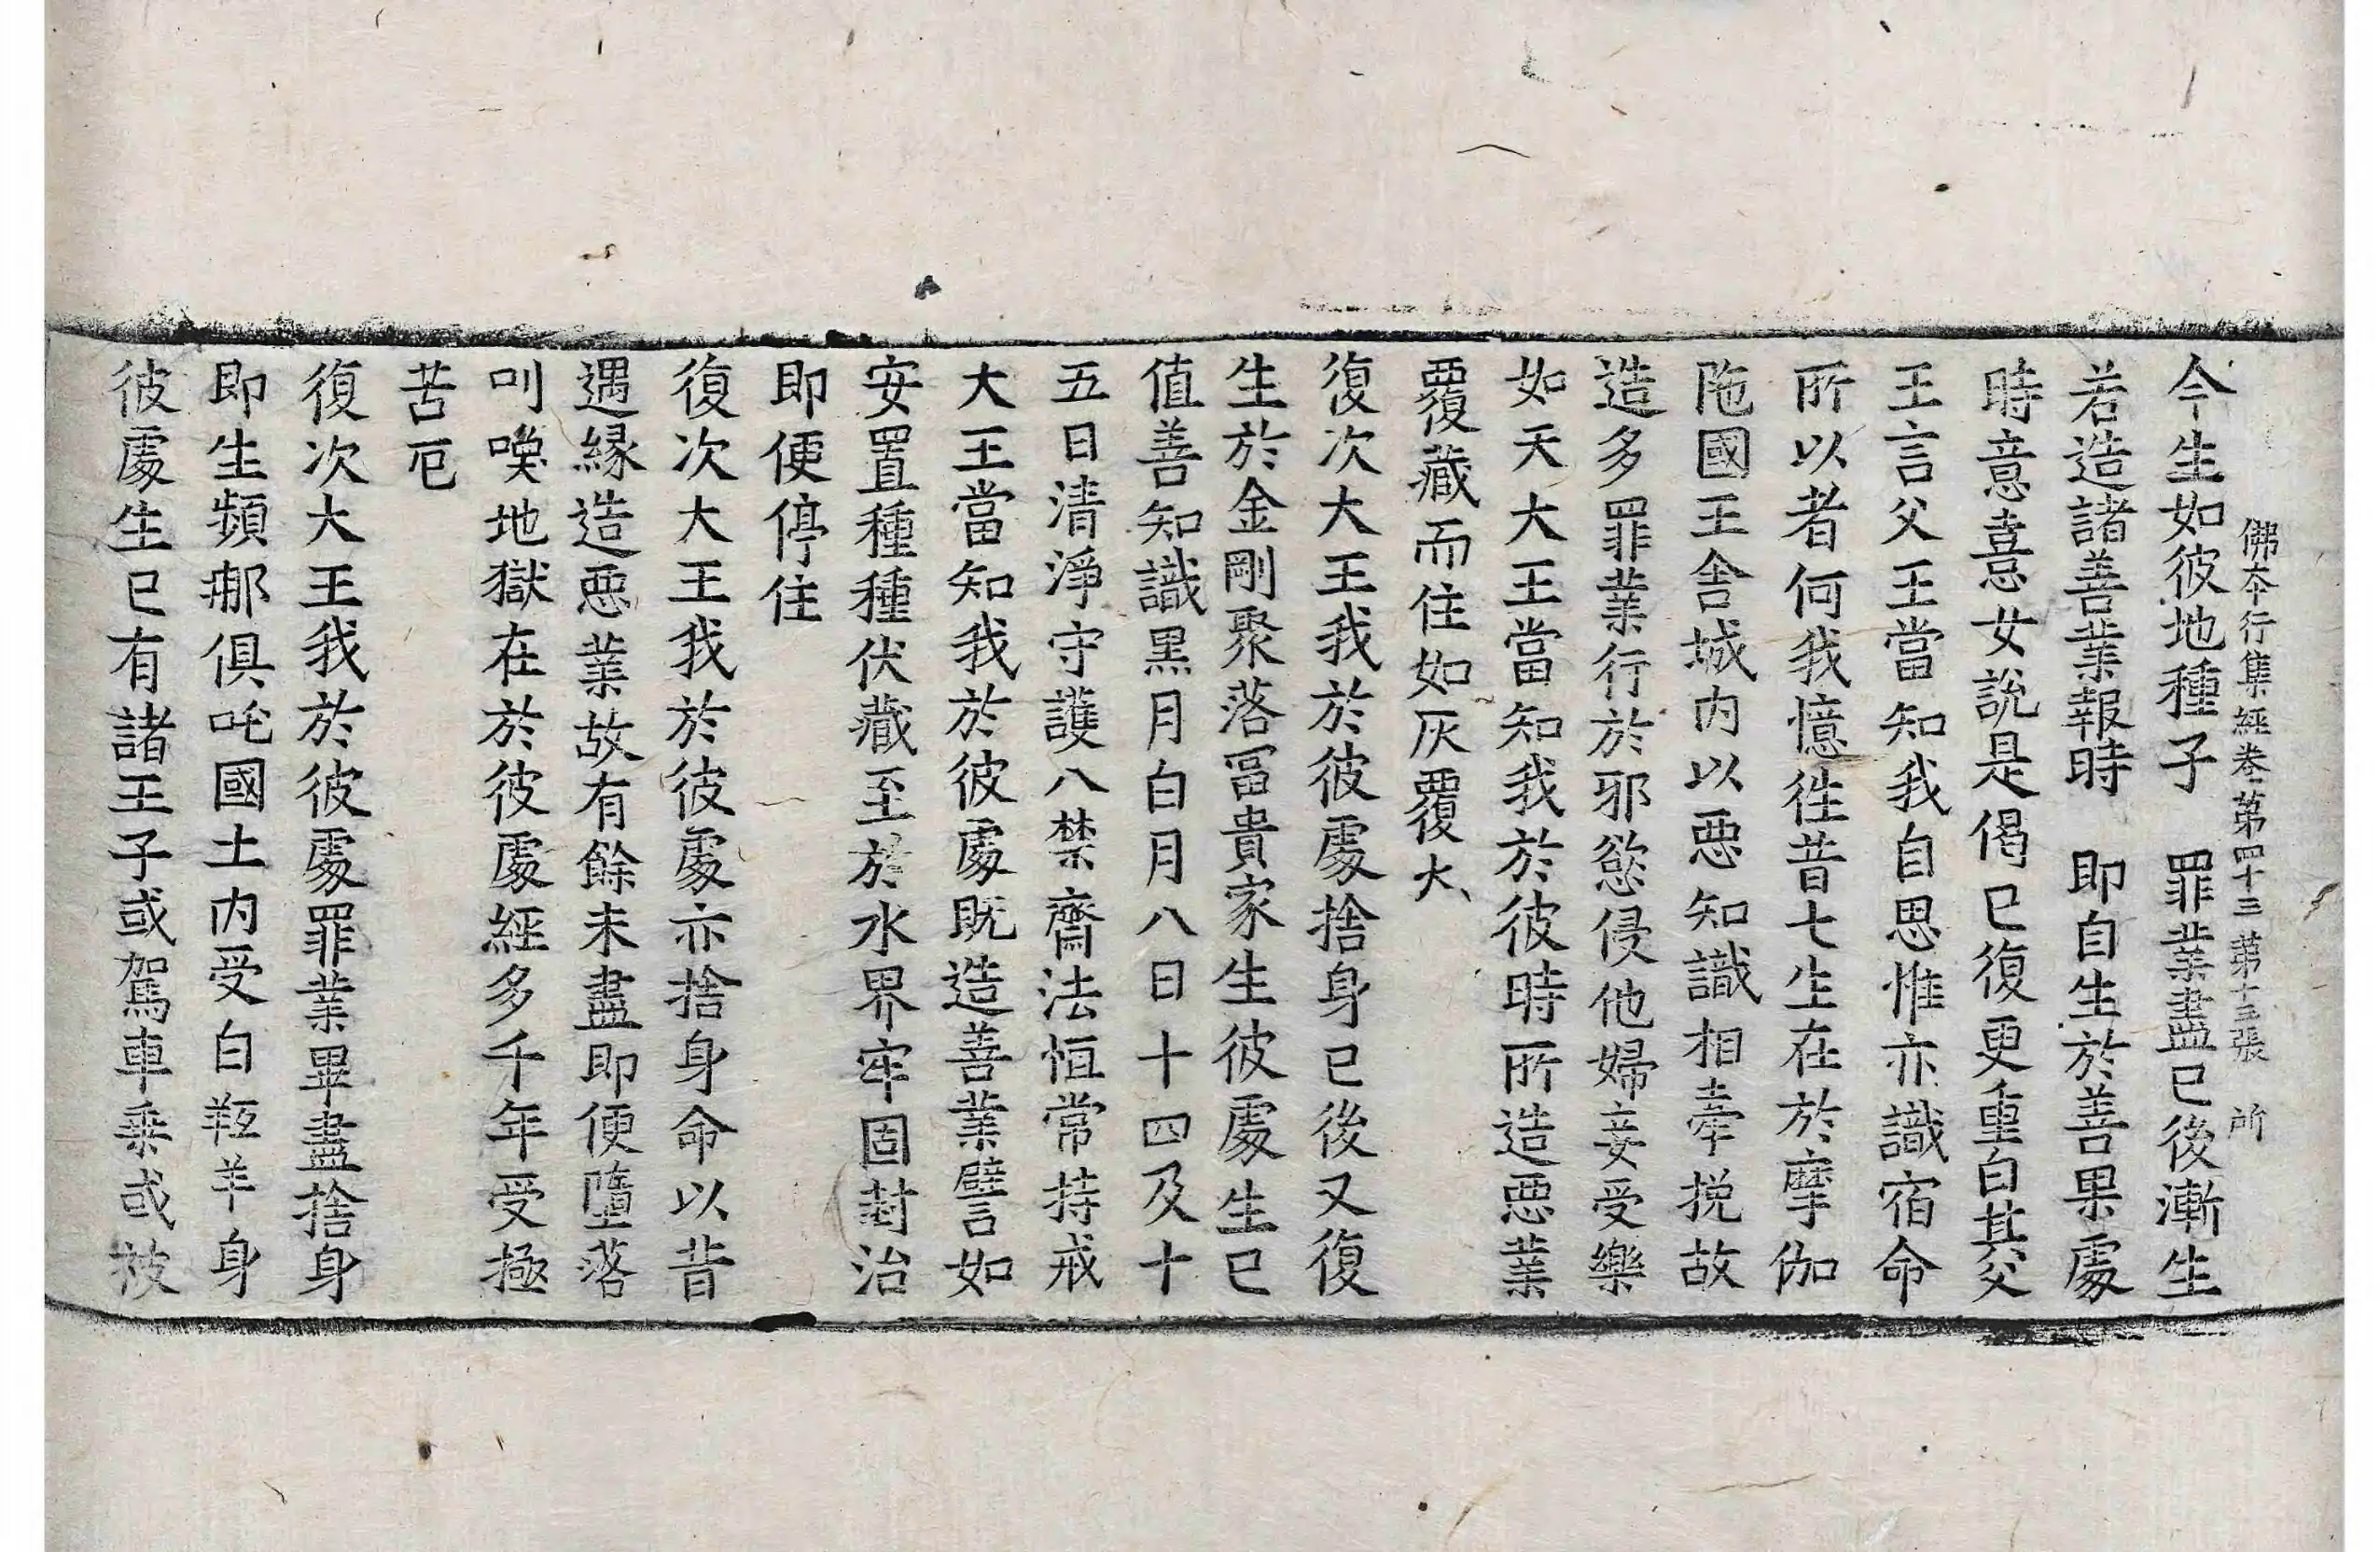 佛夲行集經卷第四十三 第十三張 所
今生如彼地種子 罪業盡已後漸生
若造諸善業報時 即自生於善果處
時意憙女說是偈已復更重白其父
王言父王當知我自思惟亦識宿命
所以者何我憶徃昔七生在於摩伽
陁國王舍城内以惡知識相牽挽故
造多罪業行於邪慾侵他婦妾受樂
如天大王當知我於彼時所造惡業
覆藏而住如灰覆火
復次大王我於彼處捨身已後又復
生於金剛聚落冨貴家生彼處生已
值善知識黒月白月八日十四及十
五日清淨守護八禁齋法恒常持戒
大王當知我於彼處既造善業譬如
安置種種伏藏至於水界牢固封治
即便停住
復次大王我於彼處亦捨身命以昔
遇緣造惡業故有餘未盡即便墮落
叫喚地獄在於彼處經多千年受極
苦厄
復次大王我於彼處罪業畢盡捨身
即生頻那俱吒國土内受白羖羊身
彼處生已有諸王子或駕車乗或被